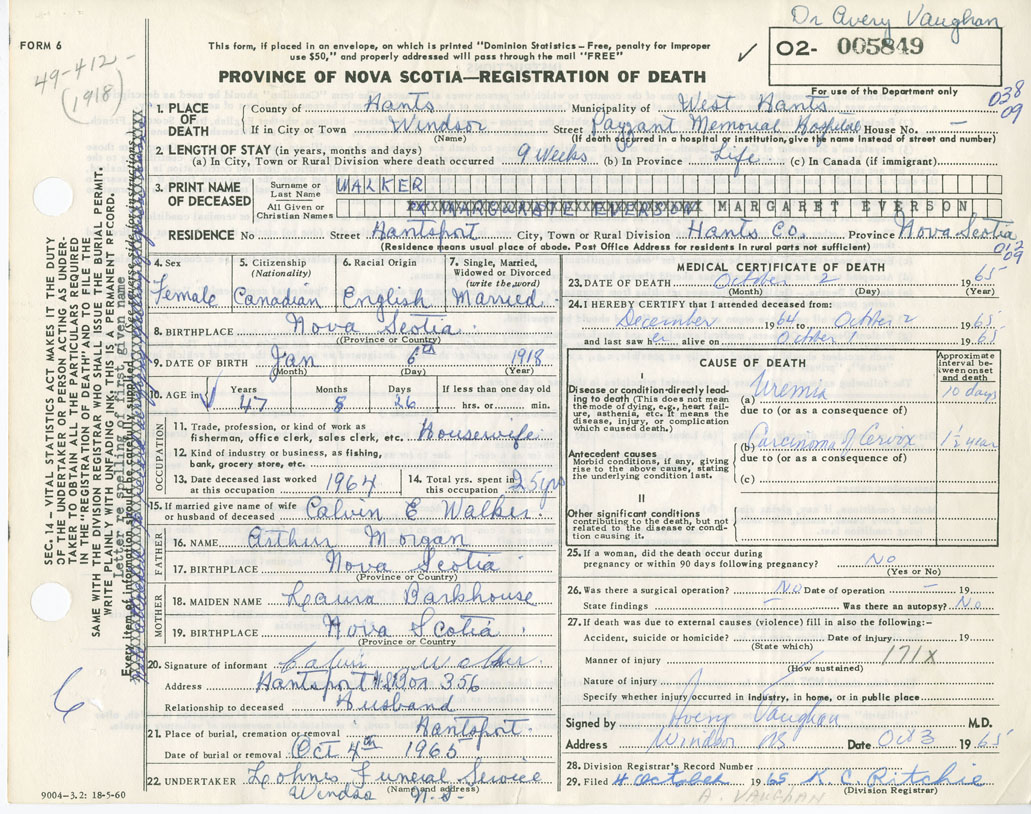 Dr Avery Vaughan
FORM 6
49-412-
(1918)
This form, if placed in an envelope, on which is printed "Dominion Statistics—Free, penalty for improper
use $50," and properly addressed will pass through the mail "FREE"
✓ 02- 005849
PROVINCE OF NOVA SCOTIA—REGISTRATION OF DEATH
For use of the Department only
038
09
1. PLACE OF DEATH
County of Hants Municipality of West Hants
If in City or Town Windsor Street Payzant Memorial Hospital House No. —
(Name) (If death occurred in a hospital or institution, give the name instead of street and number)
2. LENGTH OF STAY (in years, months and days)
(a) In City, Town or Rural Division where death occurred 9 Weeks (b) In Province Life (c) In Canada (if immigrant)
3. PRINT NAME OF DECEASED
Surname or Last Name WALKER
All Given or Christian Names MARGARET EVERSON
RESIDENCE No. Street Hantsport City, Town or Rural Division Hants Co. Province Nova Scotia
(Residence means usual place of abode. Post Office Address for residents in rural parts not sufficient)
012
09
4. Sex Female
5. Citizenship (Nationality) Canadian
6. Racial Origin English
7. Single, Married, Widowed or Divorced (write the word) Married
8. BIRTHPLACE Nova Scotia
(Province or Country)
9. DATE OF BIRTH Jan 6th 1918
(Month) (Day) (Year)
10. AGE in Years 47 Months 8 Days 26 If less than one day old hrs. or min.
OCCUPATION
11. Trade, profession, or kind of work as
fisherman, office clerk, sales clerk, etc. Housewife
12. Kind of industry or business, as fishing,
bank, grocery store, etc.
13. Date deceased last worked at this occupation 1964 14. Total yrs. spent in this occupation 25 yrs
15. If married give name of wife or husband of deceased Calvin E Walker.
FATHER
16. NAME Arthur Morgan
17. BIRTHPLACE Nova Scotia
(Province or Country)
MOTHER
18. MAIDEN NAME Laura Barkhouse
19. BIRTHPLACE Nova Scotia.
(Province or Country)
20. Signature of informant Calvin Walker
Address Hantsport N.S. Box 356
Relationship to deceased Husband
21. Place of burial, cremation or removal Hantsport.
Date of burial or removal Oct 4th 1965
22. UNDERTAKER Lohnes Funeral Service
(Name and address)
Windsor N.S.
9004-3.2: 18-5-60
MEDICAL CERTIFICATE OF DEATH
23. DATE OF DEATH October 2 1965
(Month) (Day) (Year)
24. I HEREBY CERTIFY that I attended deceased from:
December 1964 to October 2 1965
and last saw her alive on October 1 1965
CAUSE OF DEATH
Approximate interval between onset and death
I
Disease or condition directly leading to death (This does not mean the mode of dying, e.g., heart failure, asthenia, etc. It means the disease, injury, or complication which caused death.)
(a) Uremia 10 days
due to (or as a consequence of)
Antecedent causes
Morbid conditions, if any, giving rise to the above cause, stating the underlying condition last.
(b) Carcinoma of Cervix 1½ year
due to (or as a consequence of)
(c)
II
Other significant conditions
contributing to the death, but not related to the disease or condition causing it.
25. If a woman, did the death occur during
pregnancy or within 90 days following pregnancy? No
(Yes or No)
26. Was there a surgical operation? No Date of operation — 19
State findings — Was there an autopsy? No
27. If death was due to external causes (violence) fill in also the following:—
Accident, suicide or homicide? Date of injury 19
(State which)
Manner of injury 171X
(How sustained)
Nature of injury
Specify whether injury occurred in industry, in home, or in public place
Signed by Avery Vaughan M.D.
Address Windsor NS Date Oct 3 1965
28. Division Registrar's Record Number
29. Filed 4 October 1965 K. C. Ritchie
(Division Registrar)
A. VAUGHAN
SEC. 14 – VITAL STATISTICS ACT MAKES IT THE DUTY
OF THE UNDERTAKER OR PERSON ACTING AS UNDER-
TAKER TO OBTAIN ALL THE PARTICULARS REQUIRED
IN THE "REGISTRATION OF DEATH" AND TO FILE THE
SAME WITH THE DIVISION REGISTRAR WHO SHALL ISSUE THE BURIAL PERMIT.
WRITE PLAINLY WITH UNFADING INK, THIS IS A PERMANENT RECORD.
Letter re spelling of first given name
Every item of information should be carefully supplied
6